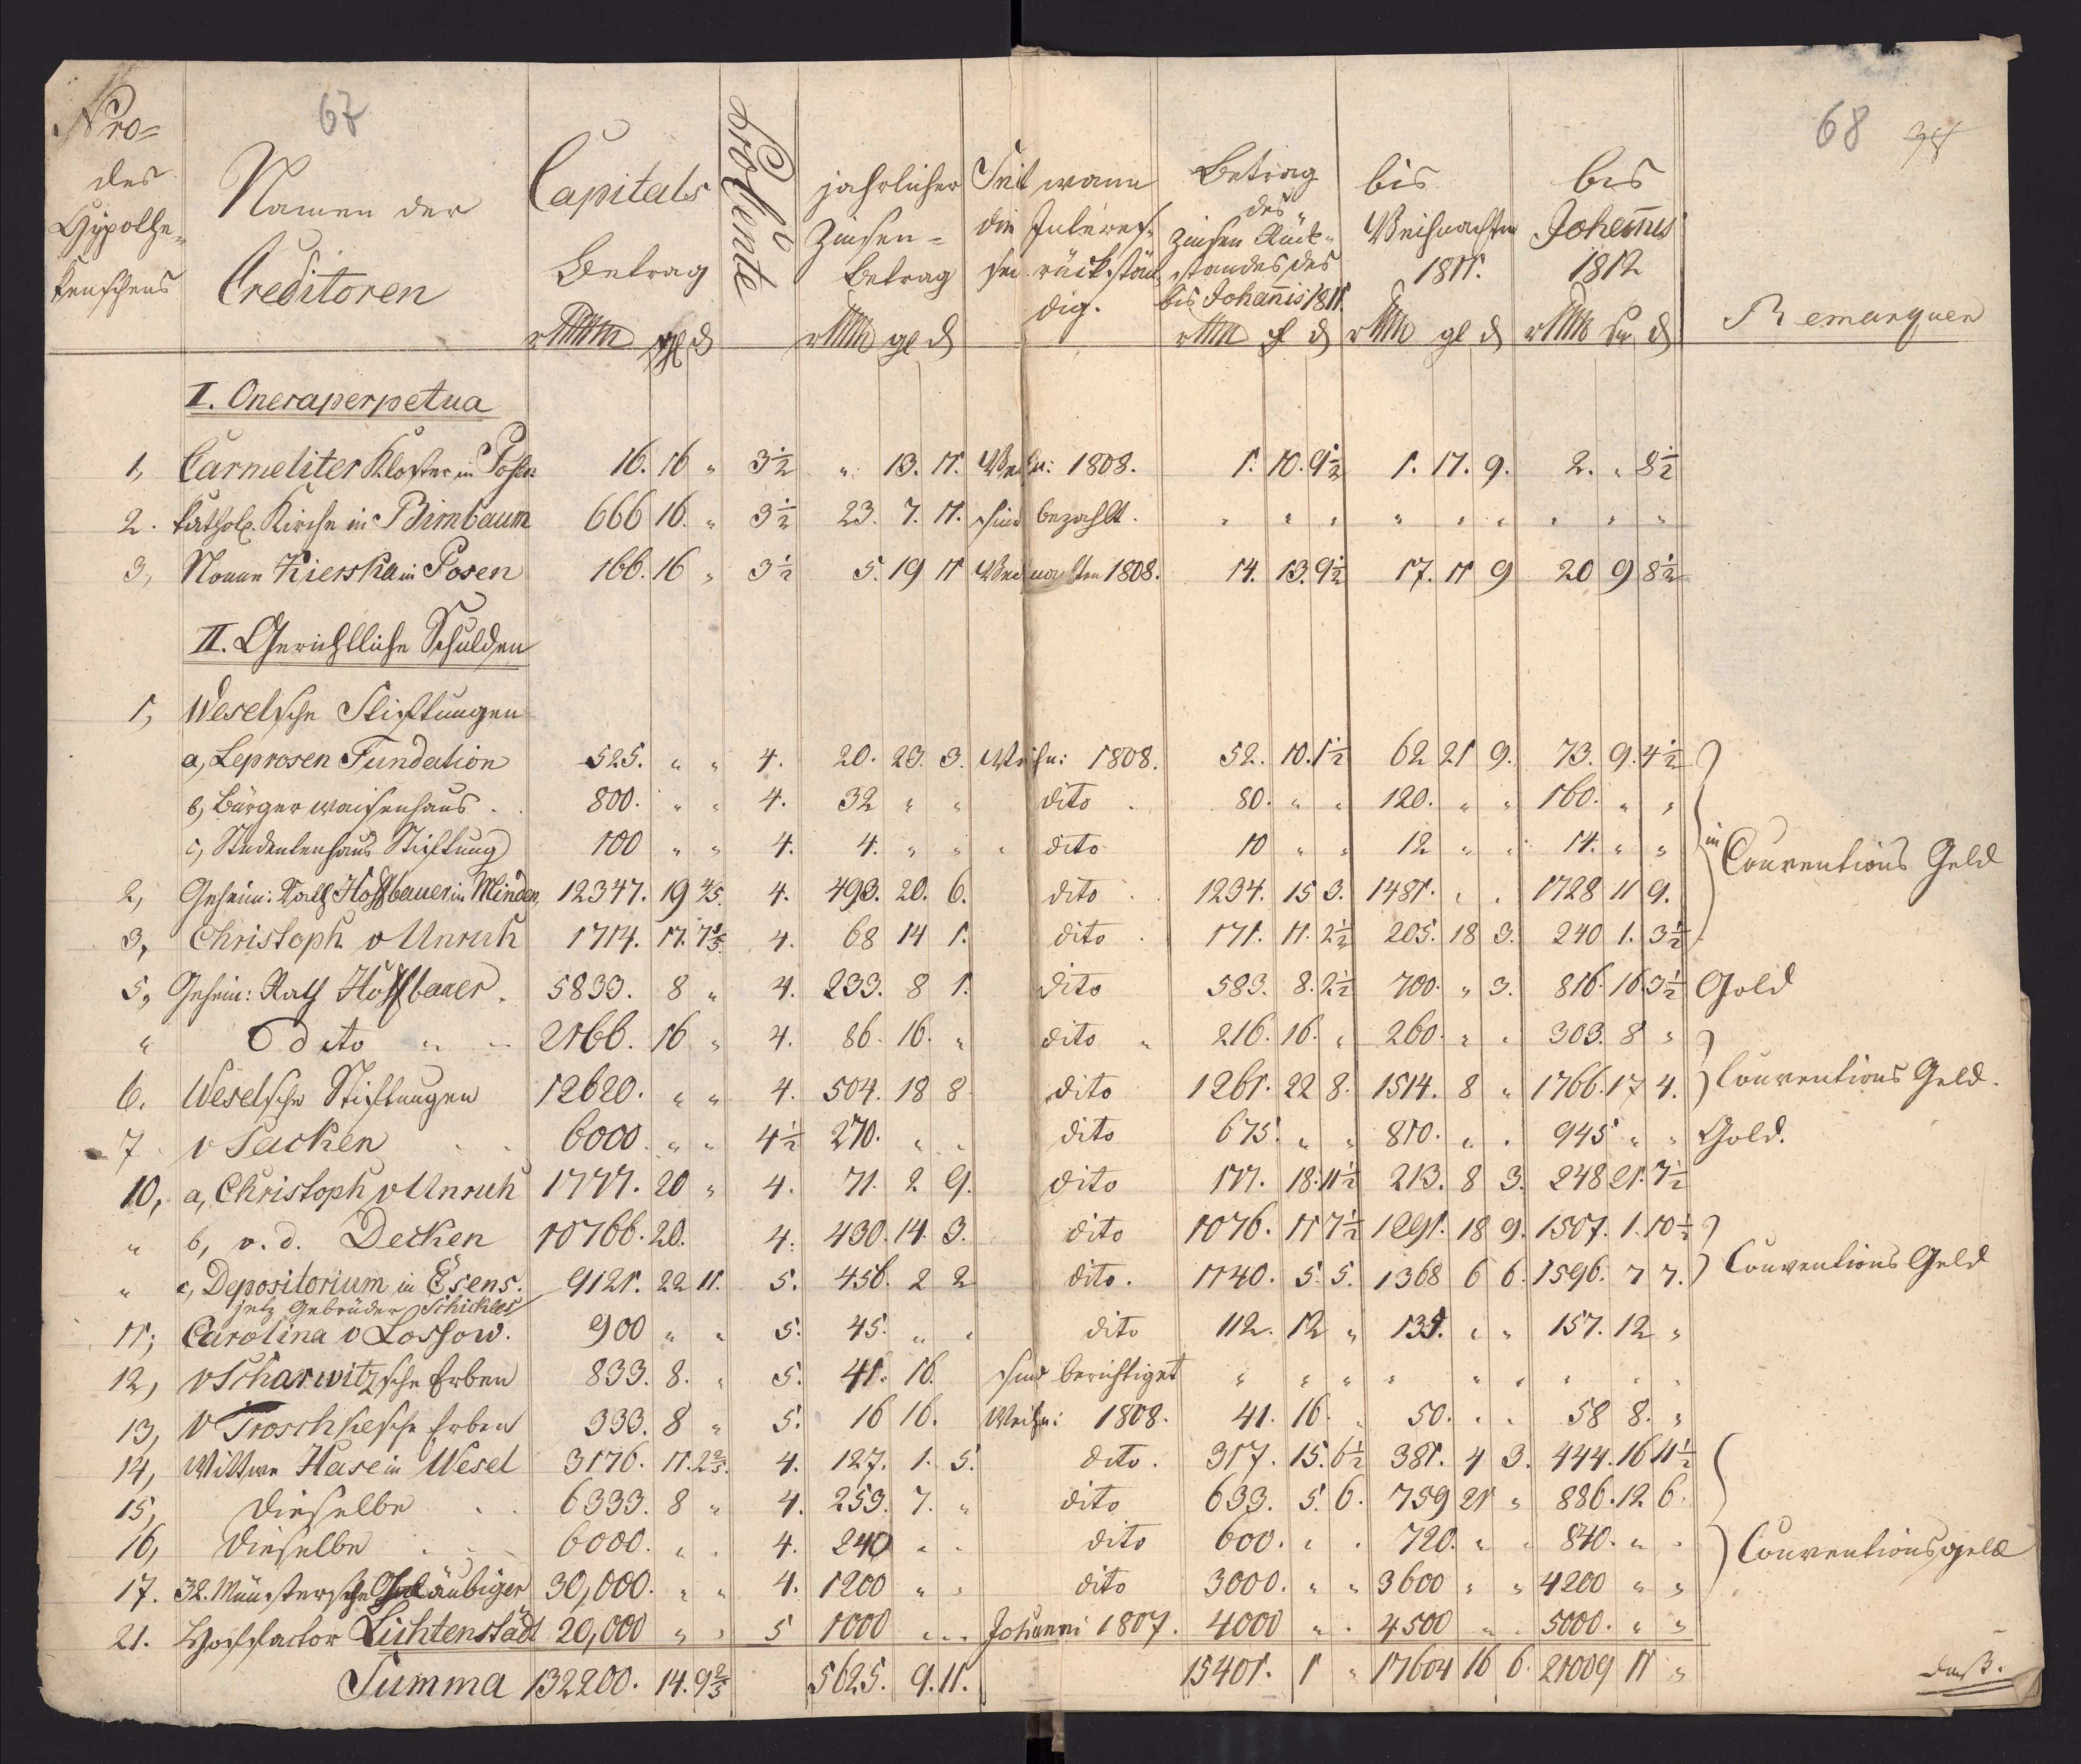 67
68
Nro=
des
Hypothe-
kenscheins
Namen der
Creditoren
Capitals
Betrag
Prozente
jahrlicher
Zinsen=
betrag
Seit wann
die Interes-
sen rückstän-
dig.
Betrag
des
Zinsen Rück-
standes des
bis Johañis 1811.
bis
Weihnachten
1811.
bis
Joheñis
1812
Remarquen
I. Oneraperpetua
1, Carmeliter Kloster in Posen 16. 16 „ 3½ „ 13. 11. Weihn: 1808. 1. 10. 9½ 1. 17. 9. 2. „ 8½
2. kathol. Kirche in Birnbaum 666 16. „ 3½ 23. 7. 11. sind bezahlt. „ „ „ „ „ „ „ „ „
3, Nonne Kierska in Posen 166. 16 „ 3½ 5. 19 11 Weihnachten 1808. 14. 13. 9½ 17. 11 9 20 9 8½
II. Gerichtliche Schulden
1, Weselsche Stiftungen
a, Leprosen Fundation 525. „ „ 4. 20. 23. 3. Weihn: 1808. 52. 10. 1½ 62 21 9. 73. 9. 4½
b, Bürger waisenhaus . 800. „ „ 4. 32 „ „ dito . 80. „ „ 120. „ „ 160. „ „
c, Studentenhaus Stiftung 100 „ „ 4. 4. „ „ dito 10 „ „ 12 „ „ 14. „ „
in Conventions Geld
2, Geheim: Rath Hoffbauer in Minden, 12347. 19 4/5. 4. 493. 20. 6. dito . 1234. 15 3. 1481. „ „ 1728 11 9.
3, Christoph v Unruh 1714. 17. 7⅕. 4. 68 14 1. dito . 171. 11. 2½ 205. 18 3. 240 1. 3½
5, Geheim: Rath Hoffbauer. 5833. 8 „ 4. 233. 8 1. dito 583. 8. 2½ 700. „ 3. 816. 16. 3½ Gold
„ dito „ „ 2166. 16 „ 4. 86. 16. „ dito „ 216. 16. „ 260. „ „ 303. 8 „
6. Weselsche Stiftungen 12620. „ „ 4. 504. 18 8 dito 1261. 22 8. 1514. 8 „ 1766. 17 4. Conventions Geld.
7 v Sacken 6000. „ „ 4½ 270. „ „ dito 675. „ „ 810. „ „ 945 „ „ Gold.
10, a, Christoph v Unruh 1777. 20 „ 4. 71. 2 9. dito 177. 18. 11½ 213. 8 3. 248 21. 7½
„ b, v. d. Decken 10766. 20. 4. 430. 14. 3. dito 1076. 11 7½ 1291. 18 9. 1507. 1. 10½
„ c, Depositorium in Esens. 9121. 22 11. 5. 456. 2 2 dito. 1140. 5. 5. 1368 6 6. 1596. 7 7. Conventions Geld
jetz Gebrüder Schickler
11; Carolina v Lossow. 900 „ „ 5. 45. „ „ dito 112. 12 „ 135. „ „ 157. 12 „
12, v Scharwitzsche Erben 833. 8. „ 5. 41. 16. sind berichtiget „ „ „ „ „ „ „ „ „
13, v Troschkesche Erben 333. 8 „ 5. 16 16. Weihn: 1808. 41. 16. „ 50. „ „ 58 8. „
14, Wittwe Hase in Wesel 3176. 11. 2⅖. 4. 127. 1. 5. dito. 317. 15. 6½ 381. 4 3. 444. 16 11½
15, dieselbe . . 6333. 8 „ 4. 253. 7. „ dito 633. 5. 6. 759 21 „ 886. 12 6.
16, dieselbe . . 6000. „ „ 4. 240 „ „ dito 600. „ „ 720. „ „ 840. „ „ Conventionsgeld
17. 32. Münstersche Gläubiger 30,000. „ „ 4. 1200 „ „ dito 3000. „ „ 3600 „ „ 4200 „ „
21. Hoffactor Lichtenstädt 20,000 „ „ 5 1000 „ „ Johanni 1807. 4000 „ „ 4500 „ „ 5000. „ „
Summa 132200. 14. 9⅖ 5625. 9. 11. 15401. 1 „ 17604 16 6. 21009 11 „
daß.